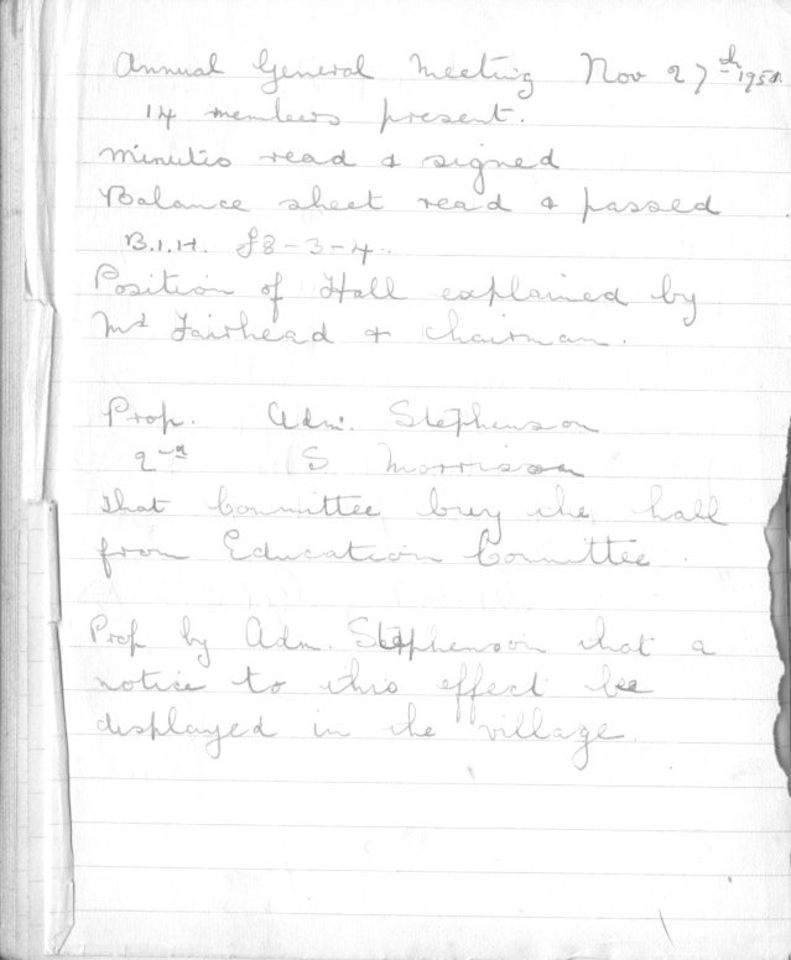 Annual General Meeting Nov 27th
14 members present.
Minutes read & signed
Balance sheet read & passed
B.I.H. £8-3-4.
Position of Hall explained by
Fairhead & chairman.
Prop. Adm. Stephenson
2nd S Morrison
that Committee buy the hall
from Education Committee.
Prop by Adm. Stephenson that a
notice to this effect be
displayed in the village.